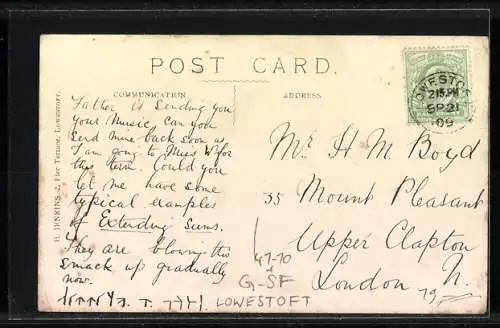 POST CARD.
COMMUNICATION
ADDRESS
H. JENKINS, 2, Pier Terrace, Lowestoft.
Father is sending you
your Music, can you
send mine back soon as
I am going to Miss W for
this term. Could you
let me have some
typical examples
of Extending Sums.
They are blowing this
smack up gradually
now.
LOWESTOFT
2 15 PM
SP 21
09
Mr H M Boyd
35 Mount Pleasant
Upper Clapton
London N.
47-70
G-SF
LOWESTOFT
79